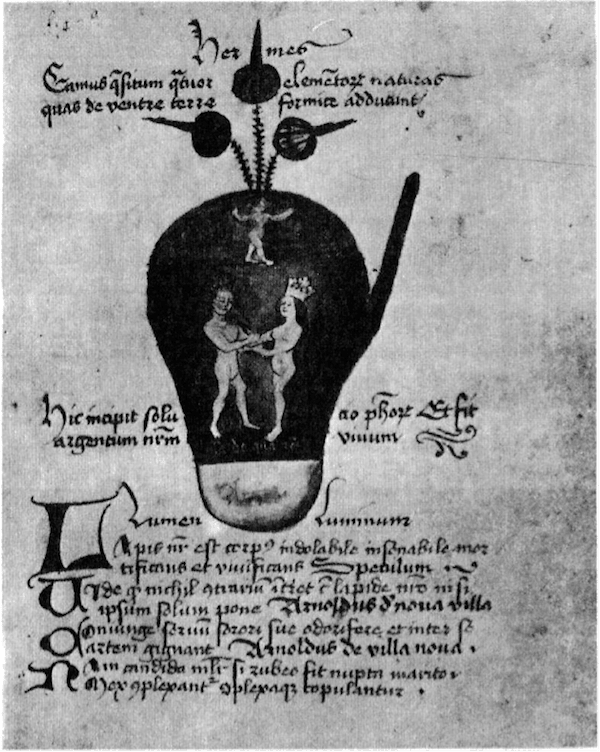 Hermes
Eamus q̄situm q̄tuor elementor̄ naturas
quas de ventre terre formice adducunt
Hic incipit solucio ph̄or̄ Et fit
argentum nr̄m vivum
Lumen luminum
Lapis nr̄ est corpꝯ indolabile insenabile mor
tificans et vivificans Speculum
Vide qͥ nichil ꝯtrariū īt̄ret ī lapide nr̄o nisi
ipsum solum pone Arnoldus d' nova villa
Coniunge servū sorori sue odorifere et inter se
artem gignant Arnoldus de villa nova
Nam candida ml̄r si rubeo fit nupta marito
Mox ꝯplexantᷣ ꝯplexaqꝫ copulantur